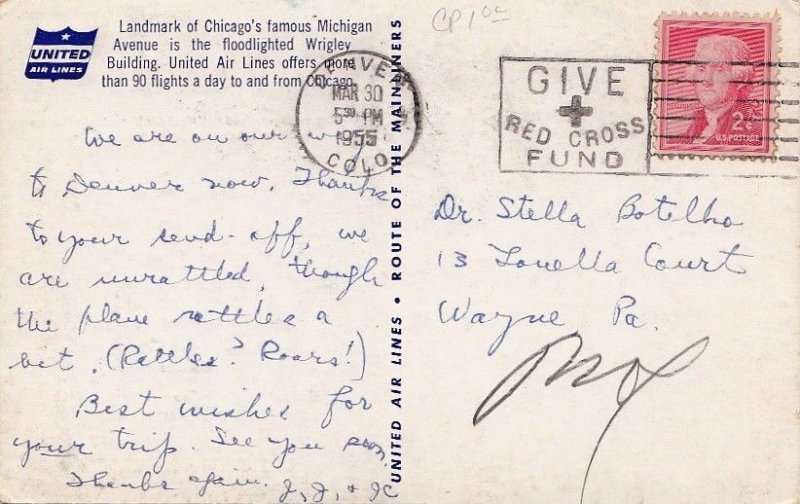 Landmark of Chicago's famous Michigan
Avenue is the floodlighted Wrigley
Building. United Air Lines offers more
than 90 flights a day to and from Chicago.
UNITED
AIR LINES
We are on our way
to Denver now. Thanks
to your send-off, we
are unrattled, though
the plane rattles a
bit. (Rattles? Roars!)
Best wishes for
your trip. See you soon.
Thanks again. J, J, & JC
UNITED AIR LINES • ROUTE OF THE MAINLINERS
CP 1 00
DENVER
MAR 30
5 30 PM
1955
COLO
GIVE
RED CROSS
FUND
2¢
U.S. POSTAGE
Dr. Stella Botelho
13 Louella Court
Wayne, Pa.